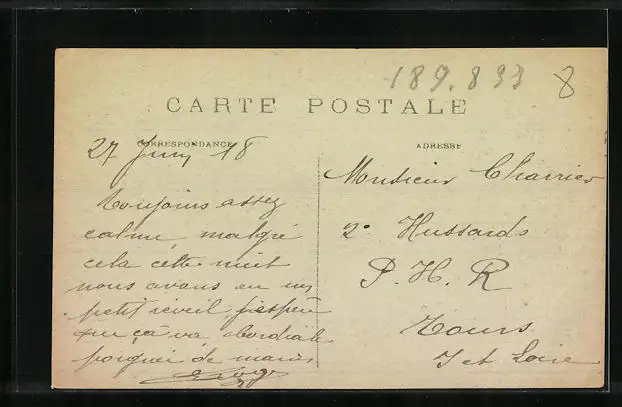 189.833 8
CARTE POSTALE
CORRESPONDANCE
ADRESSE
27 Juin 18
Toujours assez
calme, malgré
cela cette nuit
nous avons eu un
petit réveil, j'espère
que ça va. Cordiale
poignée de mains
Monsieur Charrier
2e Hussards
P. H. R
Tours
I et Loire